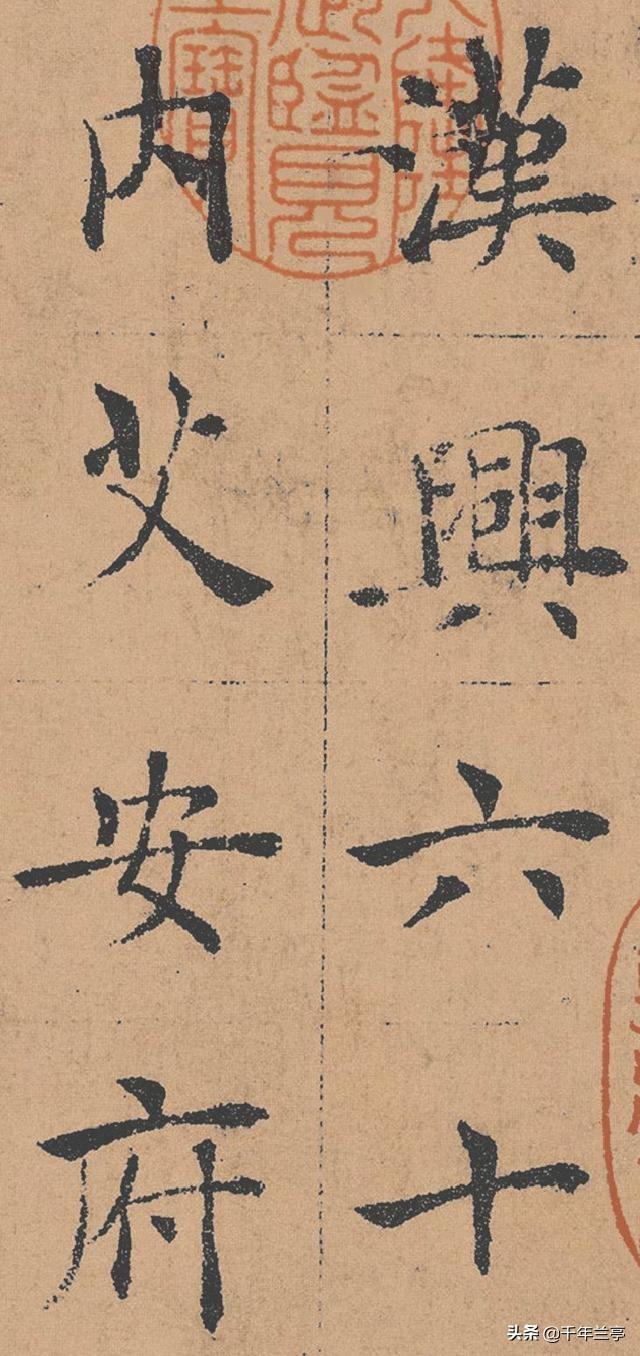 漢興六十
内艾安府
头条 @千年兰亭